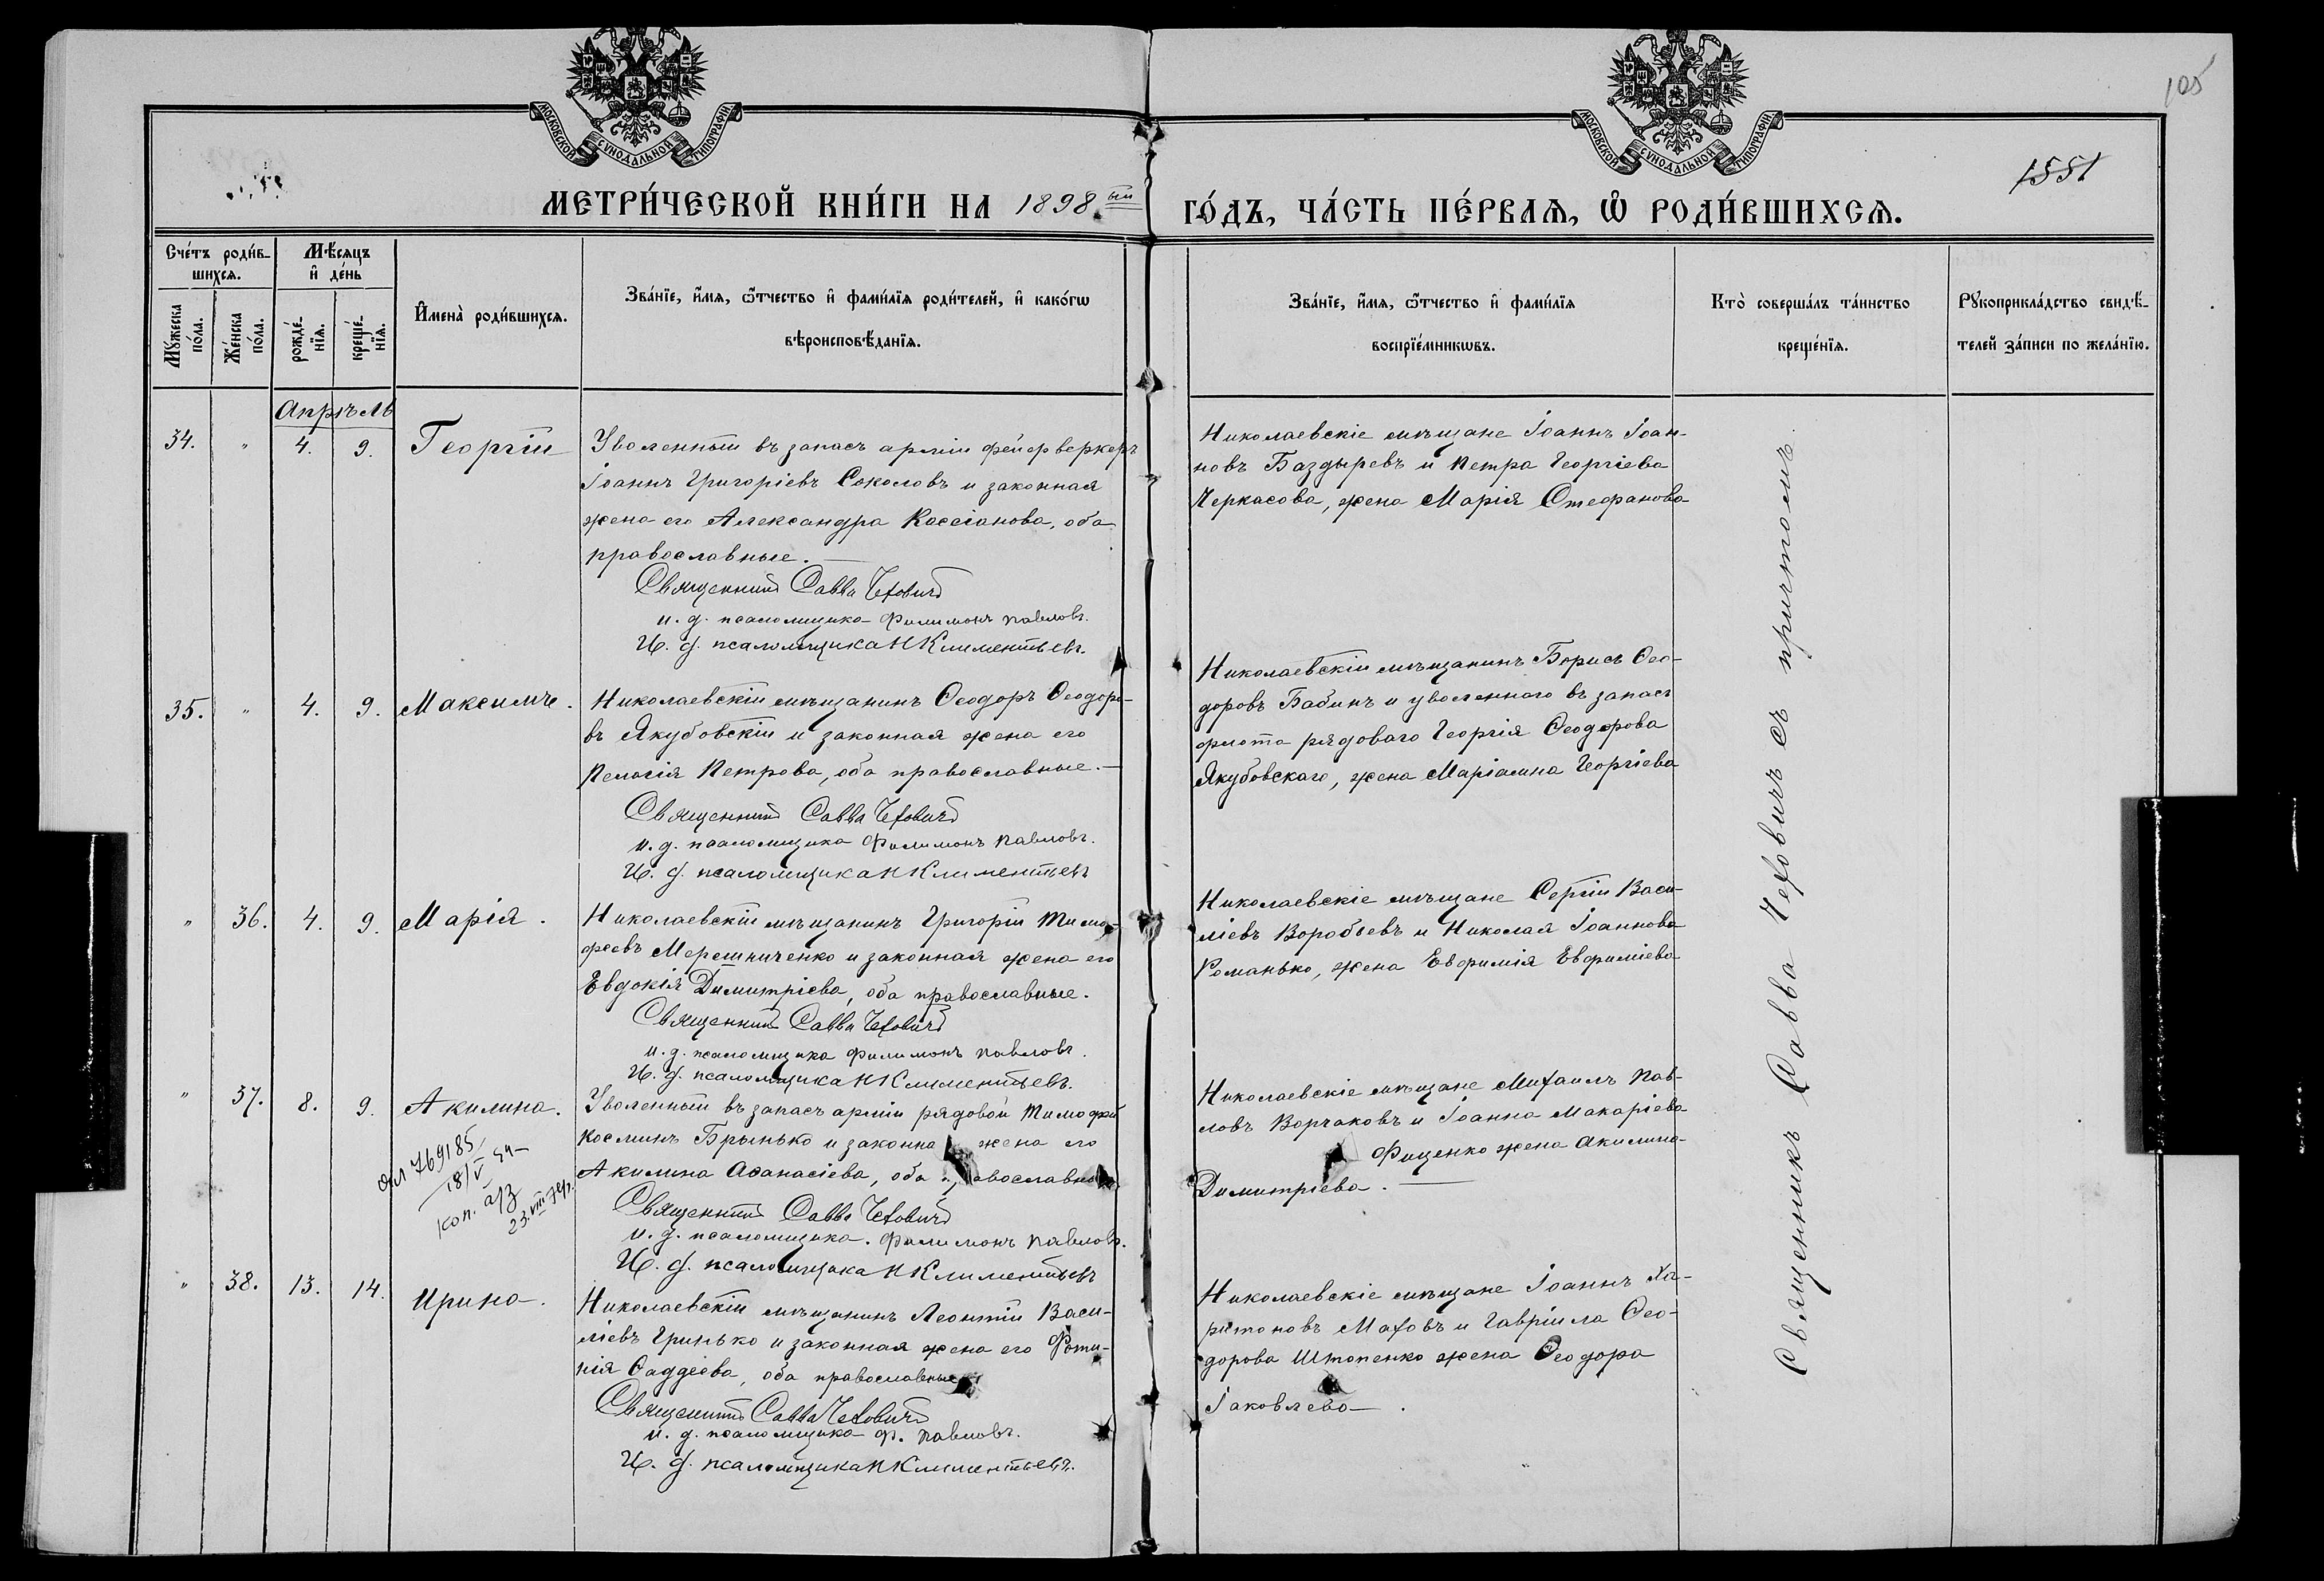 105
МОСКОВСКОЙ СѴНОДАЛЬНОЙ ТИПОГРАФІИ
МОСКОВСКОЙ СѴНОДАЛЬНОЙ ТИПОГРАФІИ
1551
МЕТРИ́ЧЕСКОЙ КНИ́ГИ НА 1898 ый ГО́ДЪ, ЧА́СТЬ ПЕ́РВАѦ, Ѡ҆ РОДИ́ВШИХСѦ.
Сче́тъ роди́в-
шихсѧ.
Мꙋ́жеска по́ла.
Же́нска по́ла.
Мѣ́сѧцъ
и҆ де́нь
рожде́-
нїѧ.
креще́-
нїѧ.
И҆мена̀ роди́вшихсѧ.
Зва́нїе, и҆́мѧ, ѻ҆́тчество и҆ фами́лїѧ роди́телей, и҆ како́гѡ
вѣроисповѣ́данїѧ.
Зва́нїе, и҆́мѧ, ѻ҆́тчество и҆ фами́лїѧ
воспрїе́мникѡвъ.
Кто̀ соверша́лъ та́инство
креще́нїѧ.
Рꙋкоприкла́дство свидѣ́-
телей за́писи по жела́нїю.
Апрѣль
34. " 4. 9. Георгій
Уволенный въ запасъ арміи фейерверкеръ
Іоаннъ Григоріевъ Соколовъ и законная
жена его Александра Кассіанова, оба
православные.
Священникъ Савва Чеховичъ
и. д. псаломщика Филимонъ Павловъ.
И. д. псаломщика Н Климентьевъ.
Николаевскіе мѣщане Іоаннъ Іоан-
новъ Баздыревъ и Петра Георгіева
Черкасова, жена Марія Стефанова
35. " 4. 9. Максимъ.
Николаевскій мѣщанинъ Ѳеодоръ Ѳеодоро-
въ Якубовскій и законная жена его
Пелагія Петрова, оба православные.
Священникъ Савва Чеховичъ
и. д. псаломщика Филимонъ Павловъ.
И. д. псаломщика Н Климентьевъ
Николаевскій мѣщанинъ Борисъ Ѳео-
доровъ Бабинъ и уволеннаго въ запасъ
флота рядоваго Георгія Ѳеодорова
Якубовскаго, жена Маріамна Георгіева
" 36. 4. 9. Марія.
Николаевскій мѣщанинъ Григорій Тимо-
феевъ Мерешниченко и законная жена его
Евдокія Димитріева, оба православные.
Священникъ Савва Чеховичъ
и. д. псаломщика Филимонъ Павловъ.
И. д. псаломщика Н Климентьевъ.
Николаевскіе мѣщане Сергій Васи-
ліевъ Воробьевъ и Николая Іоаннова
Романько, жена Евфимія Евфиміева
" 37. 8. 9. Акилина.
769185
18/V
коп.
23.VIII
Уволенный въ запасъ арміи рядовой Тимофей
Косминъ Брынько и законна жена его
Акилина Аѳанасіева, оба православные
Священникъ Савва Чеховичъ
и. д. псаломщика. Филимонъ Павловъ.
И. д. псаломщика Н Климентьевъ
Николаевскіе мѣщане Михаилъ Пав-
ловъ Ворчаковъ и Іоанна Макаріева
Фиценко жена Акилина
Димитріева.
" 38. 13. 14. Ирина.
Николаевскій мѣщанинъ Леонтій Васи-
ліевъ Гринько и законная жена его Фоти-
нія Ѳаддеева, оба православные
Священникъ Савва Чеховичъ
и. д. псаломщика Ф. Павловъ.
И. д. псаломщика Н Климентьевъ.
Николаевскіе мѣщане Іоаннъ Ха-
ритоновъ Маховъ и Гавріила Ѳео-
дорова Штопенко жена Ѳеодора
Іаковлева.
Священникъ Савва Чеховичъ съ причтомъ